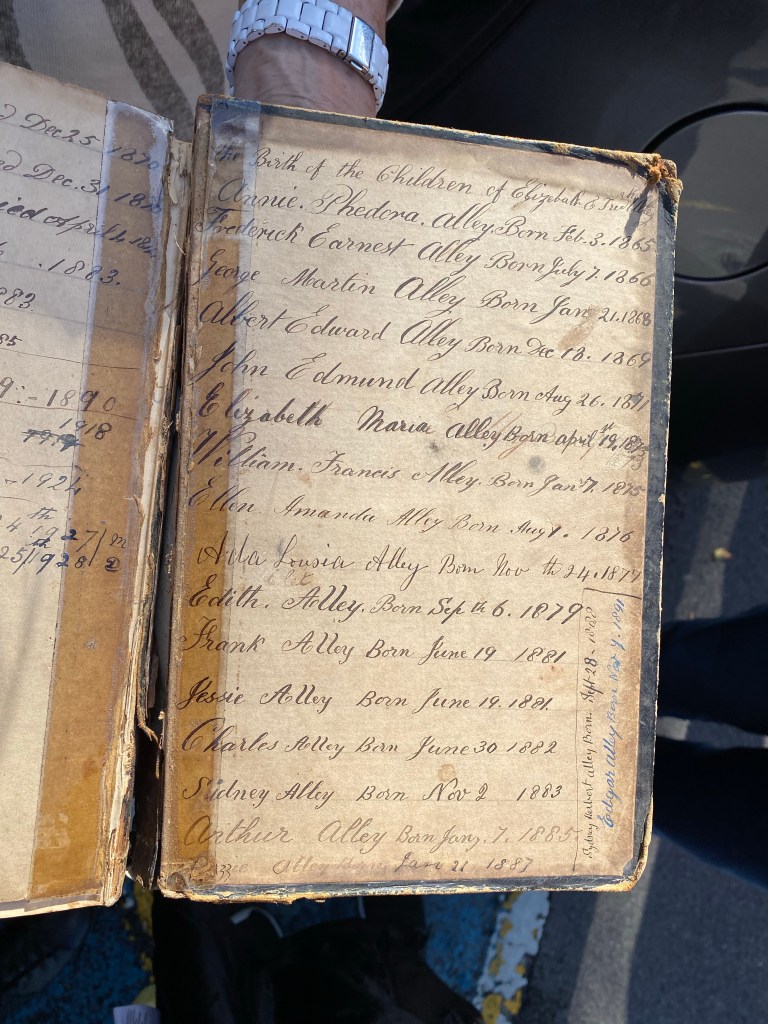 Dec 25 1870
Dec. 31
April
1883.
883
85
9:-1890
1918
-1924
24th 1927/m
25/1928 D
the Birth of the Children of Elizabeth &
Annie. Phedora. Alley. Born Feb. 3. 1865
Frederick Earnest Alley Born July 7. 1866
George Martin Alley Born Jan 21. 1868
Albert Edward Alley Born Dec 18. 1869
John Edmund Alley Born Aug 26. 1871
Elizabeth Maria Alley Born april 19,
William. Francis Alley. Born Jan 7. 1875
Ellen Amanda Alley Born Aug 1. 1876
Ada Lousia Alley Born Nov th 24. 1877
Edith. Alley. Born Sep th 6. 1879
Frank Alley Born June 19 1881
Jessie Alley Born June 19. 1881.
Charles Alley Born June 30 1882
Sidney Alley Born Nov 2 1883
Arthur Alley Born Jany. 7. 1885
Alley Jan 21 1887
Sydney Herbert Alley Born. Sept-28-1888
Edgar Alley Born Nov 9. 1891